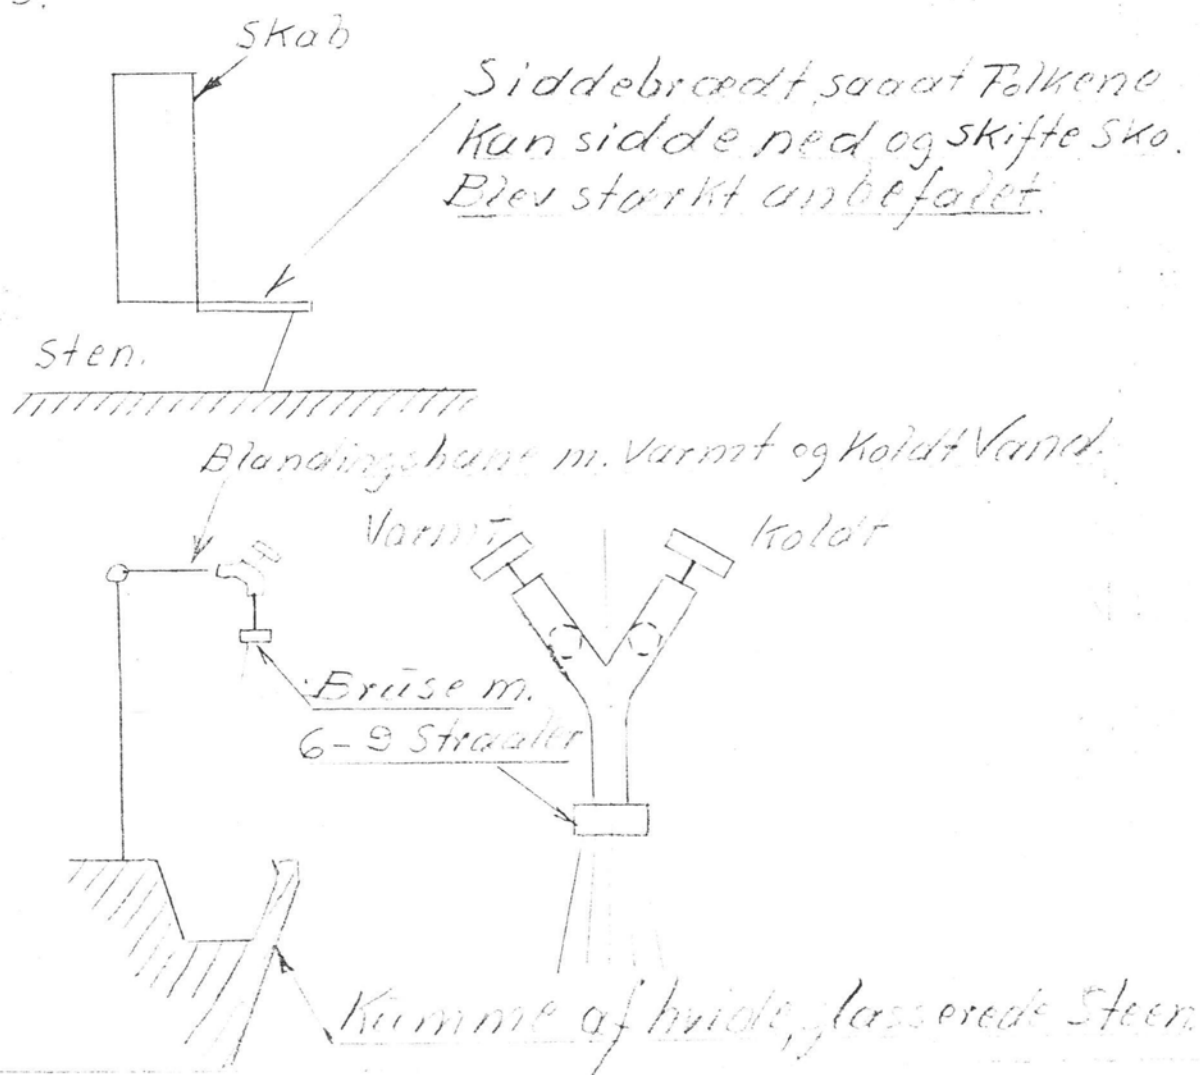 Skab
Siddebrædt, saaat Folkene
Kan sidde ned og skifte Sko.
Blev stærkt anbefalet.
Sten.
Blandingshane m. Varmt og Koldt Vand.
Varmt
Koldt
Bruse m.
6-9 Straaler
Kumme af hvide, glasserede Steen